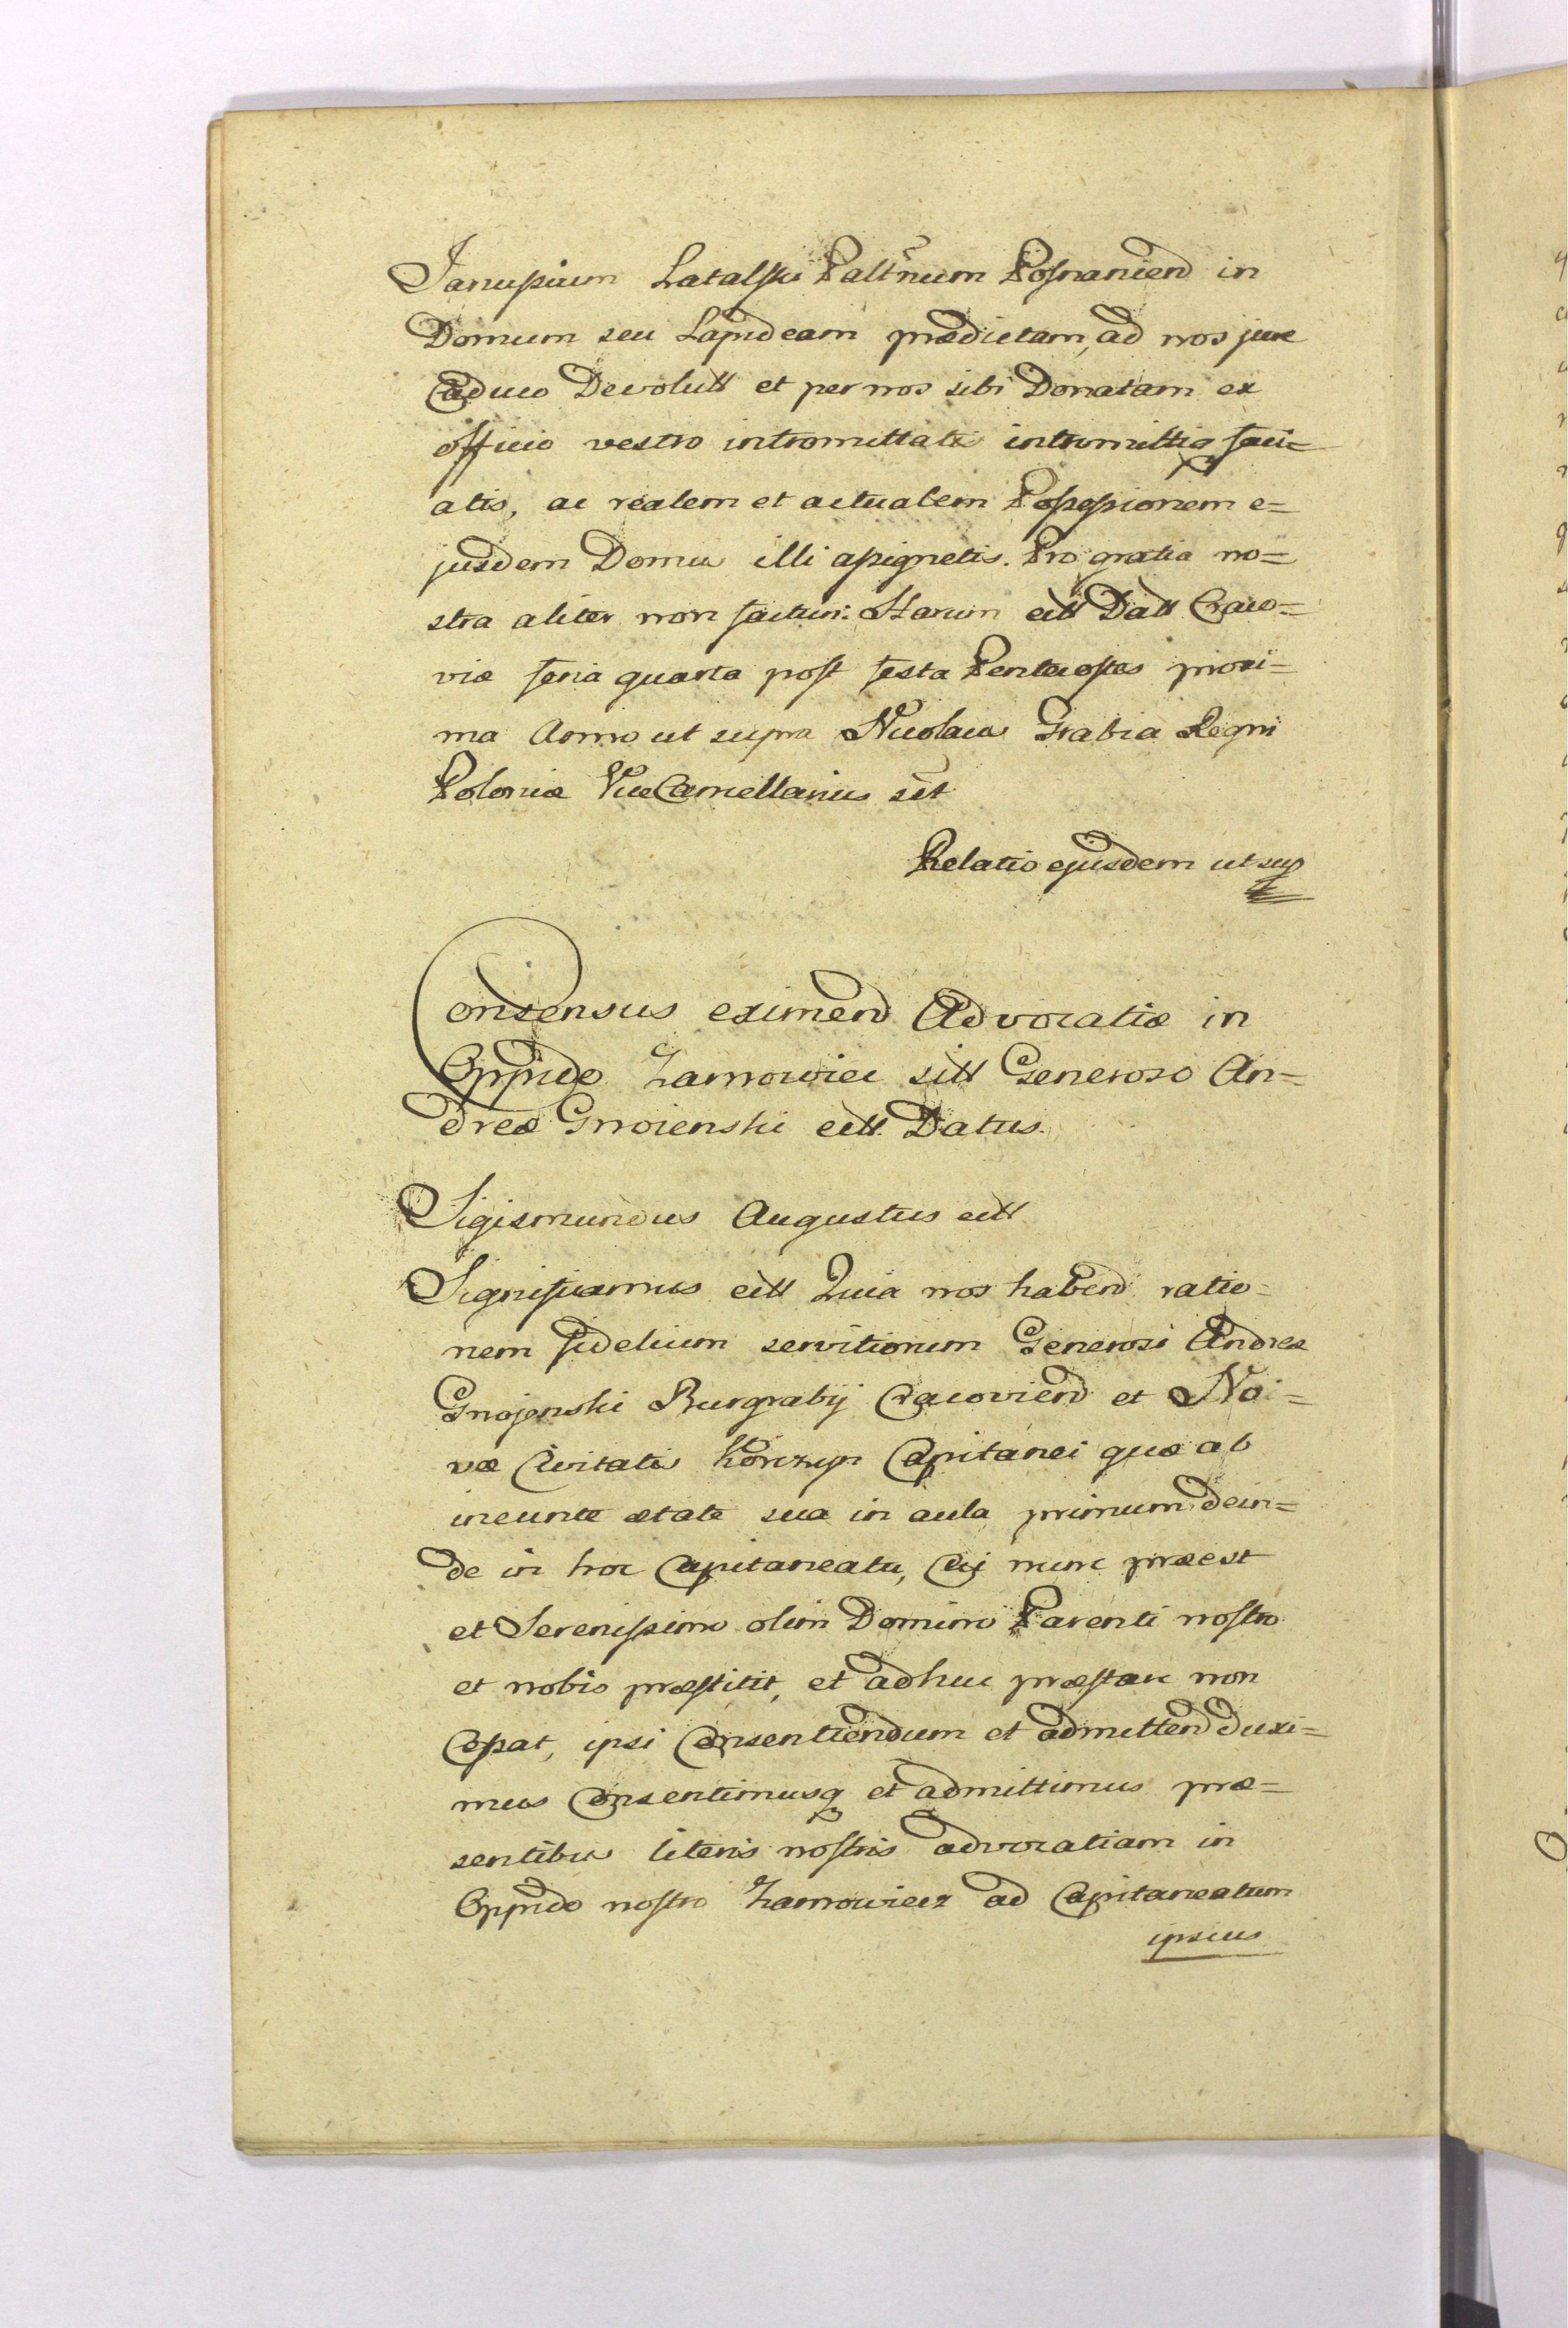 Janussium Latalski Paltnum Posnaniend in
Domum seu Lapideam prædictam, ad nos jure
Caduco Devolutt et per nos sibi Donatam ex
officio vestro intromittatis intromittiq faci=
atis, ac realem et actualem Possessionem e=
jusdem Domus illi assignetis. Pro gratia no=
stra aliter non facturi. Harum ett Datt Craco=
viæ feria quarta post festa Pentecostes proxi=
ma Anno ut supra Nicolaus Grabia Regni
Poloniæ ViceCancellarius sst
Relatio ejusdem ut sup
Consensus eximend Advocatiæ in
Oppido Zarnowiec sitt Generoso An=
dreæ Gnoienski ett Datus.
Sigismundus Augustus ett
Significamus ett Quia nos habend ratio=
nem fidelium servitiorum Generosi Andreæ
Gnojenski Burgrabij Cracoviend et No=
væ Civitatis Korczyn Capitanei quæ ab
ineunte ætate sua in aula primum dein=
de in hoc Capitaneatu, Cui nunc præest
et Serenissimo olim Domino Parenti nostro
et nobis præstitit, et adhuc præstare non
Cessat, ipsi Consentiendum et admittend duxi=
mus Consentimusq et admittimus præ=
sentibus literis nostris advocatiam in
Oppido nostro Zarnowiecz ad Capitaneatum
ipsius